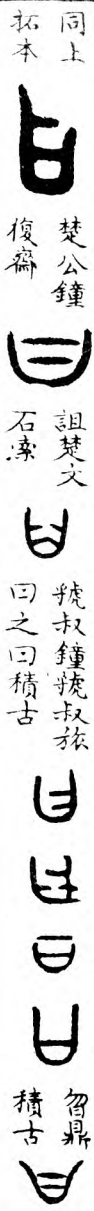 同上
拓本
楚公鐘
復齋
詛楚文
石索
虢叔鐘虢叔旅
曰之曰積古
曶鼎
積古